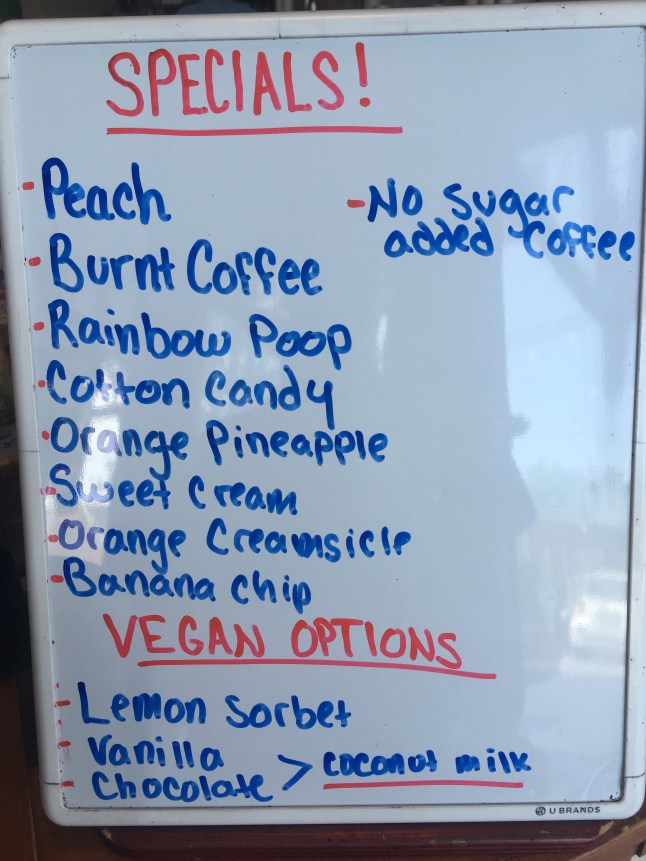 SPECIALS!
- Peach
- Burnt Coffee
- Rainbow Poop
- Cotton Candy
- Orange Pineapple
- Sweet Cream
- Orange Creamsicle
- Banana chip
- No sugar
added Coffee
VEGAN OPTIONS
- Lemon Sorbet
- Vanilla
- Chocolate > coconut milk
U BRANDS